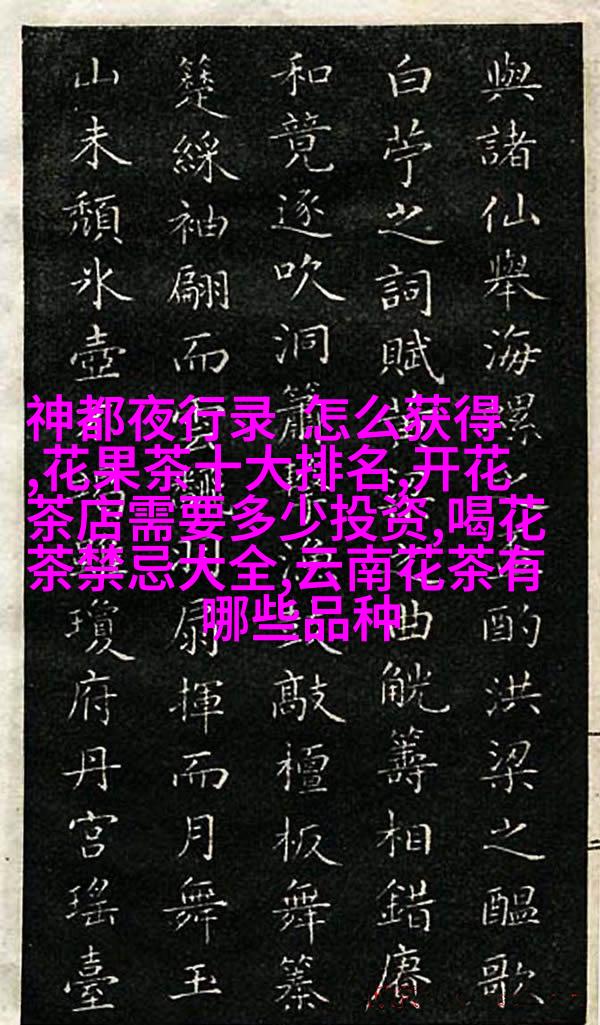 神都夜行录 怎么获得
,花果茶十大排名,开花
茶店需要多少投资,喝花
茶禁忌大全,云南花茶有
哪些品种
與諸仙舉海螺之酌洪梁之醖歌
白苧之詞賦梁曲觥籌相錯賡
和竟逐吹洞簫敲檀板舞
綵袖翩而雪飄羽扇揮而月舞玉
山未頹氷壺瓊府丹宮瑤臺